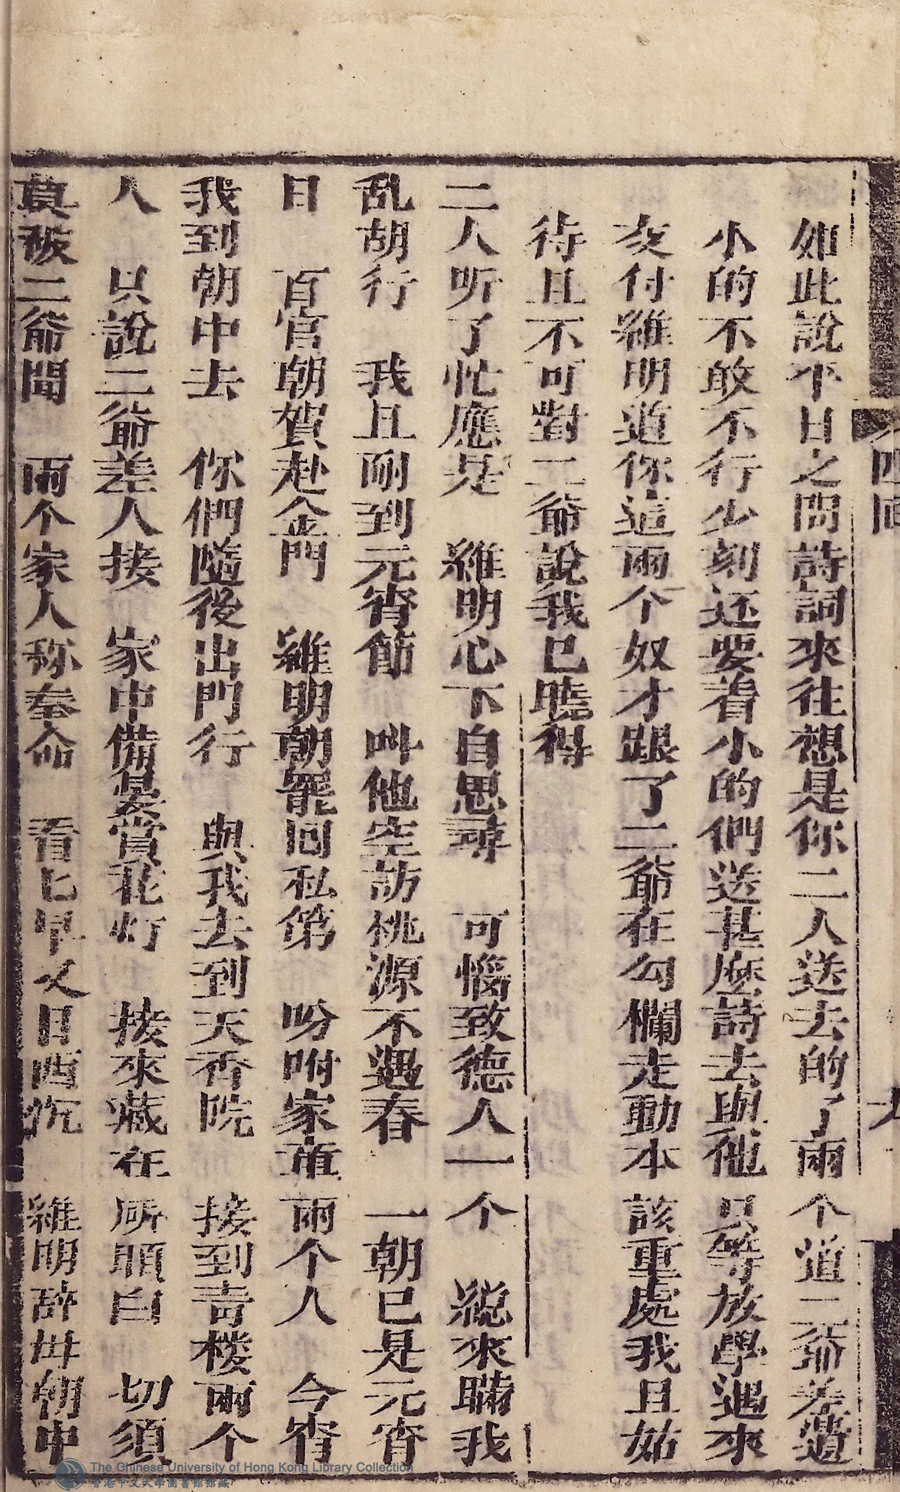 四回
如此說平日之間詩詞來往想是你二人送去的了兩个道二爺差遣
小的不敢不行少刻还要着小的們送甚麽詩去與他只等放學過來
友付維明道你這兩个奴才跟了二爺在勾欄走動本該重處我且姑
待且不可對二爺說我已曉得
二人听了忙應是　維明心下自思尋　可惱致德人一个　総來瞞我
乱胡行　我且耐到元宵節　叫他空訪桃源不遇春　一朝已是元宵
日　百官朝賀赴金門　維明朝罷回私第　吩咐家童兩个人　今宵
我到朝中去　你們隨後出門行　與我去到天香院　接到青楼兩个
人　只說二爺差人接　家中備晏賞花灯　接來藏在所順白　切須
莫被二爺聞　兩个家人称奉命　看匕早又日西沉　維明辞母朝中
The Chinese University of Hong Kong Library Collection
香港中文大學圖書館館藏